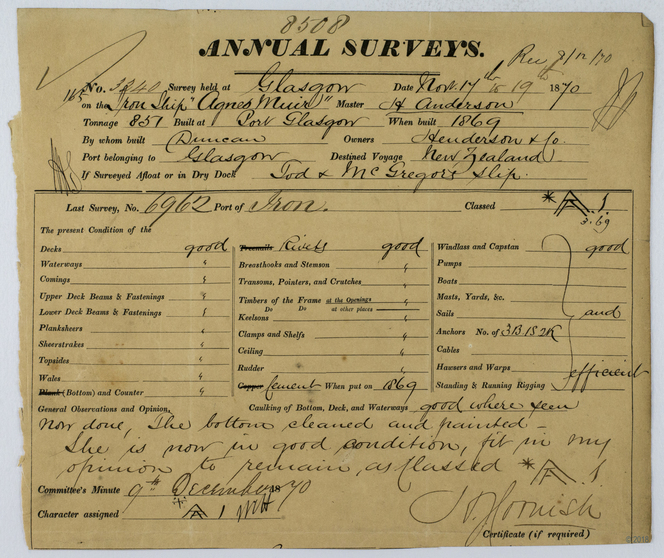 8508
ANNUAL SURVEYS.
Rec 8/12/70
No. 3240 Survey held at Glasgow Date Nov. 17th to 19th 1870
on the Iron Ship "Agnes Muir" Master H Anderson
Tonnage 851 Built at Port Glasgow When built 1869
By whom built Duncan Owners Henderson & Co.
Port belonging to Glasgow Destined Voyage New Zealand
If Surveyed Afloat or in Dry Dock Tod & McGregor's Slip.
Last Survey, No. 6962 Port of Iron. Classed * A 1
3.69
The present Condition of the
Decks good
Waterways "
Comings "
Upper Deck Beams & Fastenings "
Lower Deck Beams & Fastenings "
Planksheers "
Sheerstrakes "
Topsides "
Wales "
Plank (Bottom) and Counter "
Treenails Rivets good
Breasthooks and Stemson "
Transoms, Pointers, and Crutches "
Timbers of the Frame at the Openings "
Do Do at other places
Keelsons "
Clamps and Shelfs "
Ceiling "
Rudder "
Copper Cement When put on 1869
Windlass and Capstan good
Pumps
Boats
Masts, Yards, &c.
Sails and
Anchors No. of 3B 1S 2K
Cables
Hawsers and Warps efficient
Standing & Running Rigging
General Observations and Opinion,
Caulking of Bottom, Deck, and Waterways good where seen
Now done, The bottom cleaned and painted —
She is now in good condition, fit in my
opinion to remain, as Classed * A 1
Committee's Minute 9th December 1870
Character assigned A 1
Certificate (if required)
© 2016